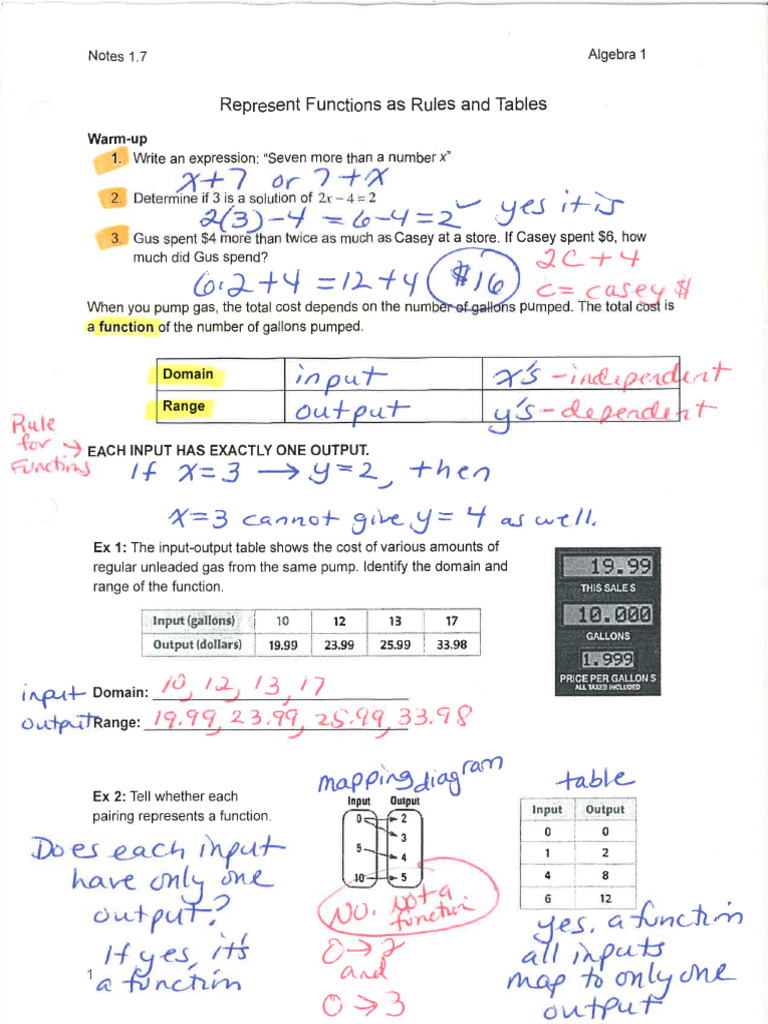 Notes 1.7
Algebra 1
Represent Functions as Rules and Tables
Warm-up
1. Write an expression: “Seven more than a number x”
x+7 or 7+x
2. Determine if 3 is a solution of 2x – 4 = 2
2(3)-4 = 6-4 = 2 ✓ yes it is
3. Gus spent $4 more than twice as much as Casey at a store. If Casey spent $6, how
much did Gus spend?
2C+4
6·2+4 = 12+4 $16
c = casey $
When you pump gas, the total cost depends on the number of gallons pumped. The total cost is
a function of the number of gallons pumped.
Domain input x's - independent
Range output y's - dependent
Rule for Functions →
EACH INPUT HAS EXACTLY ONE OUTPUT.
If x=3 → y=2, then
x=3 cannot give y=4 as well.
Ex 1: The input-output table shows the cost of various amounts of
regular unleaded gas from the same pump. Identify the domain and
range of the function.
19.99
THIS SALE $
10.000
GALLONS
1.999
PRICE PER GALLON $
ALL TAXES INCLUDED
Input (gallons) 10 12 13 17
Output (dollars) 19.99 23.99 25.99 33.98
input Domain: 10, 12, 13, 17
output Range: 19.99, 23.99, 25.99, 33.98
Ex 2: Tell whether each
pairing represents a function.
Does each input
have only one
output?
If yes, it's
a function
mapping diagram
Input Output
0 2
3
5 4
10 5
No, not a
function
0→2
and
0→3
table
Input Output
0 0
1 2
4 8
6 12
yes, a function
all inputs
map to only one
output
1